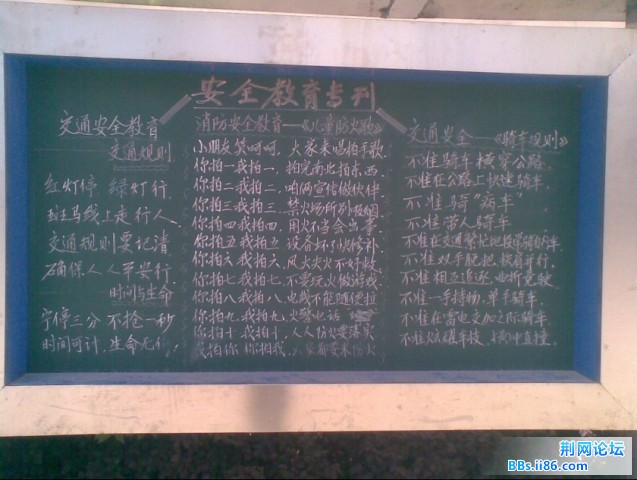 安全教育专刊
交通安全教育
交通规则
红灯停 绿灯行
斑马线上走行人
交通规则要记清
确保人人平安行
时间与生命
宁停三分 不抢一秒
时间可计 生命无价
消防安全教育——《儿童防火歌》
小朋友笑呵呵，大家来唱拍手歌
你拍一我拍一，拍完南北拍东西
你拍二我拍二，咱俩宣传做伙伴
你拍三我拍三，禁火场所别吸烟
你拍四我拍四，用火不当会出事
你拍五我拍五，设备坏了快修补
你拍六我拍六，风大火大不好救
你拍七我拍七，不要玩火做游戏
你拍八我拍八，电线不能随便拉
你拍九，我拍九，火警电话
你拍十，我拍十，人人防火要落实
我拍你 你拍我，防火
交通安全——《骑车规则》
不准骑车横穿公路
不准在公路上快速骑车
不准骑“病车”
不准带人骑车
不准在交通繁忙地段带骑车
不准双手脱把，扶肩并行
不准相互追逐，曲折竞驶
不准一手持物，单手骑车
不准在雷电交加之际骑车
不准横冲直撞
荆网论坛
BBs.ii86.com